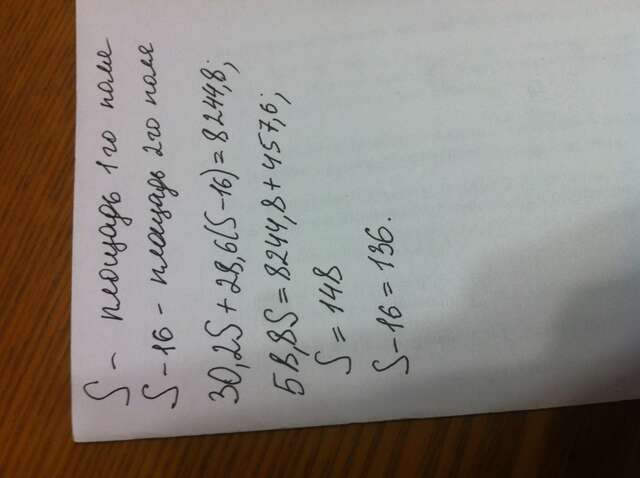 S - площадь 1го поля
S-16 - площадь 2го поля
30,2S + 28,6(S-16) = 8244,8;
58,8S = 8244,8 + 457,6;
S = 148
S-16 = 136.